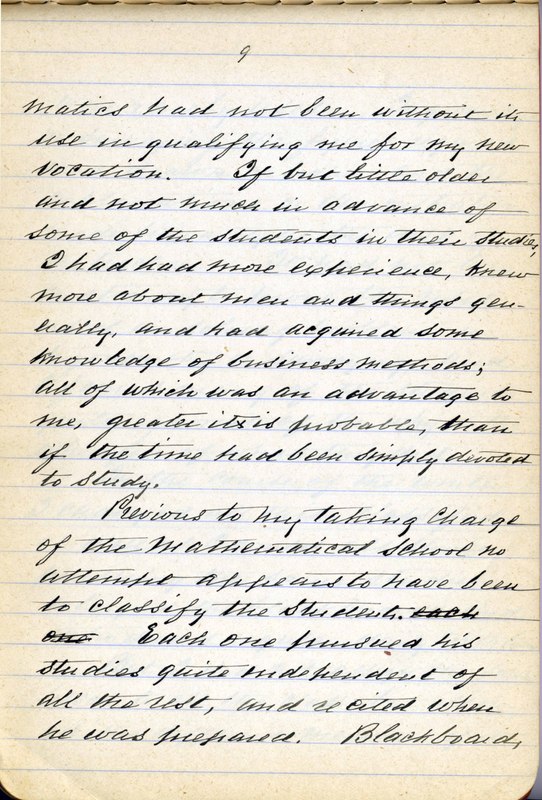 9
matics had not been without its
use in qualifying me for my new
vocation. If but little older
and not much in advance of
some of the students in their studies,
I had had more experience, knew
more about men and things gen-
erally, and had acquired some
knowledge of business methods;
all of which was an advantage to
me, greater it is probable, than
if the time had been simply devoted
to study.
Previous to my taking charge
of the Mathematical School no
attempt appears to have been
to classify the students. each
one Each one pursued his
studies quite independent of
all the rest, and recited when
he was prepared. Blackboards